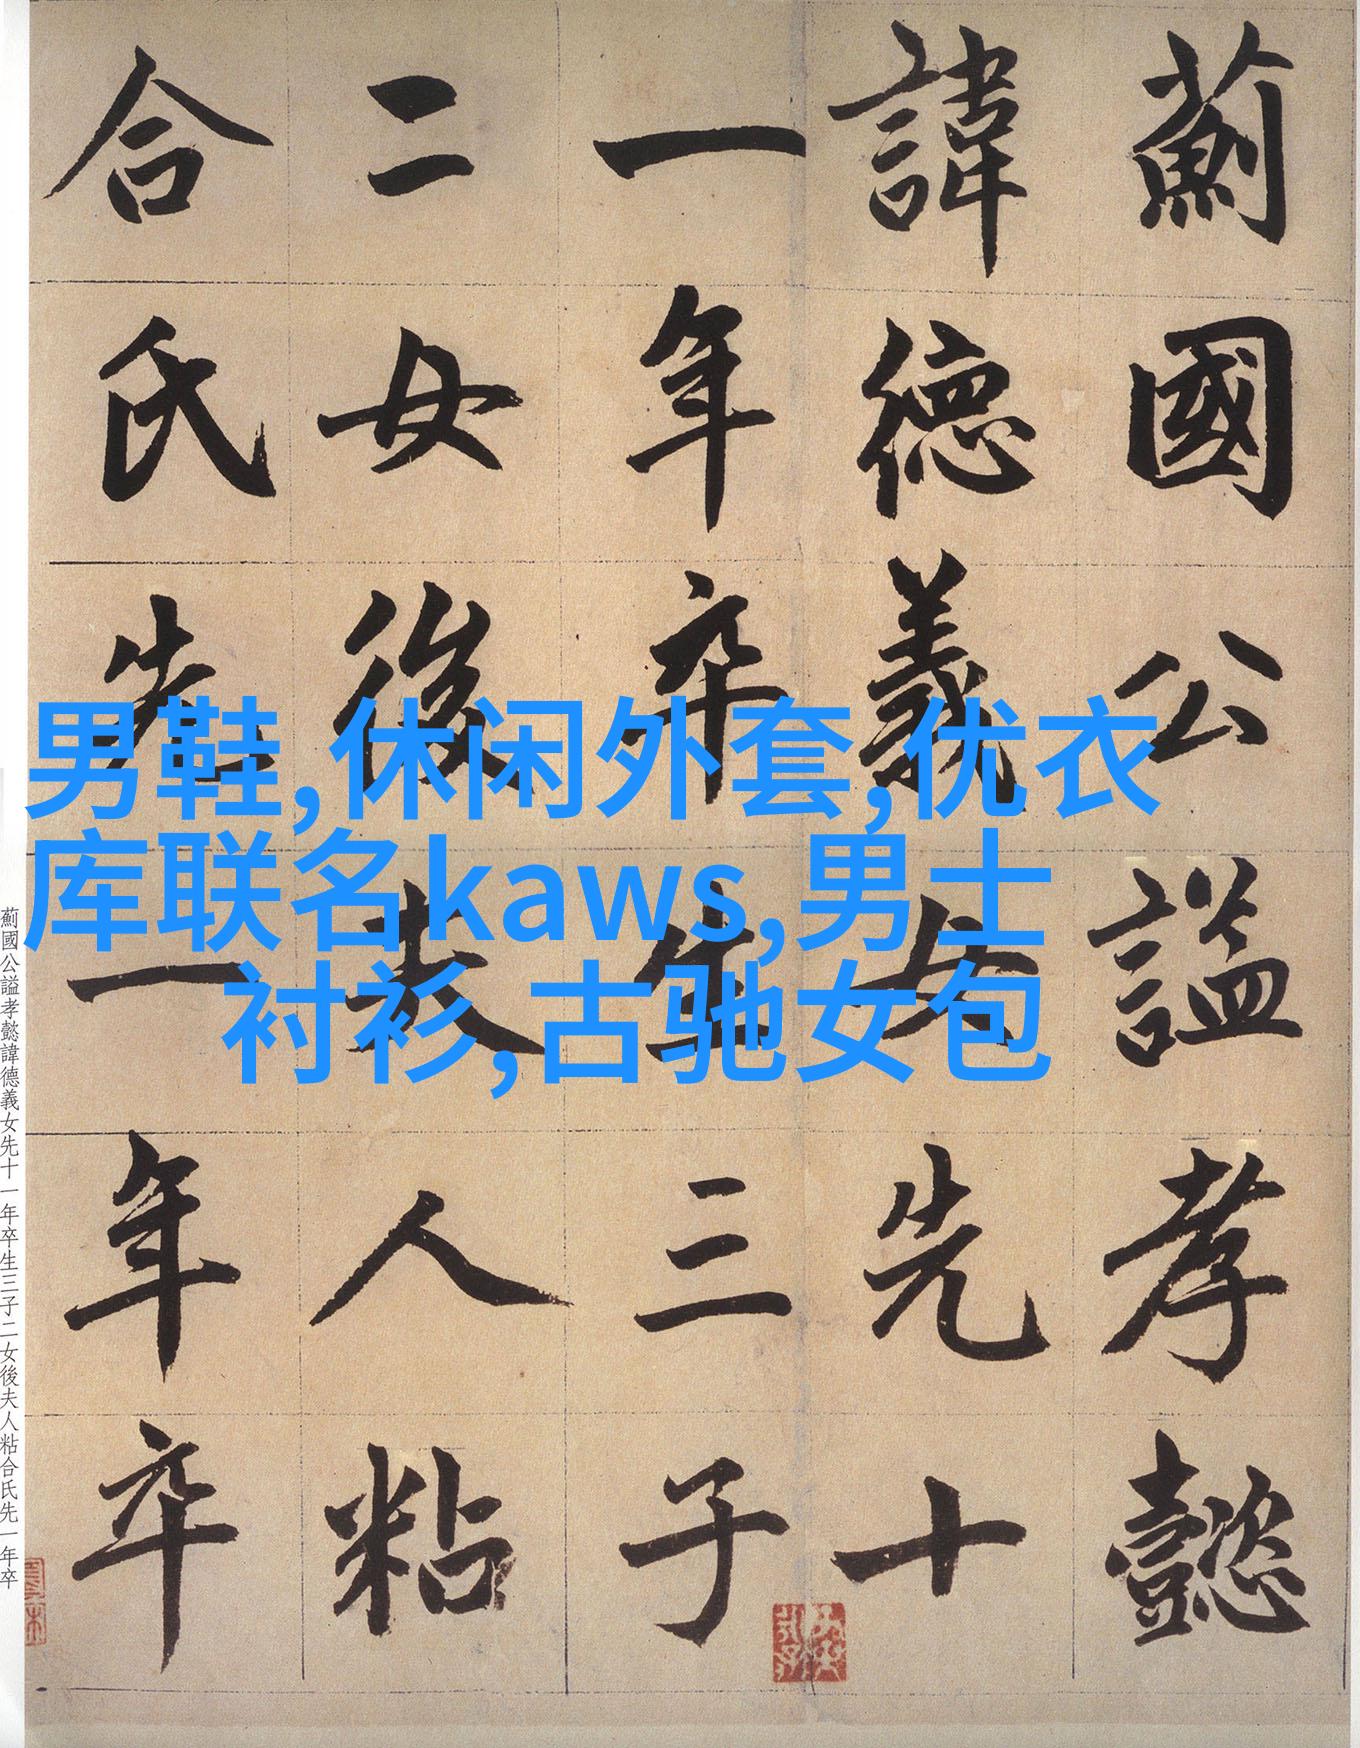 薊國公謚孝懿
諱德義女先十
一年卒生三子
二女後夫人粘
合氏先一年卒
男鞋,休闲外套,优衣
库联名kaws,男士
衬衫,古驰女包
薊國公謚孝懿諱德義女先十一年卒生三子二女後夫人粘合氏先一年卒